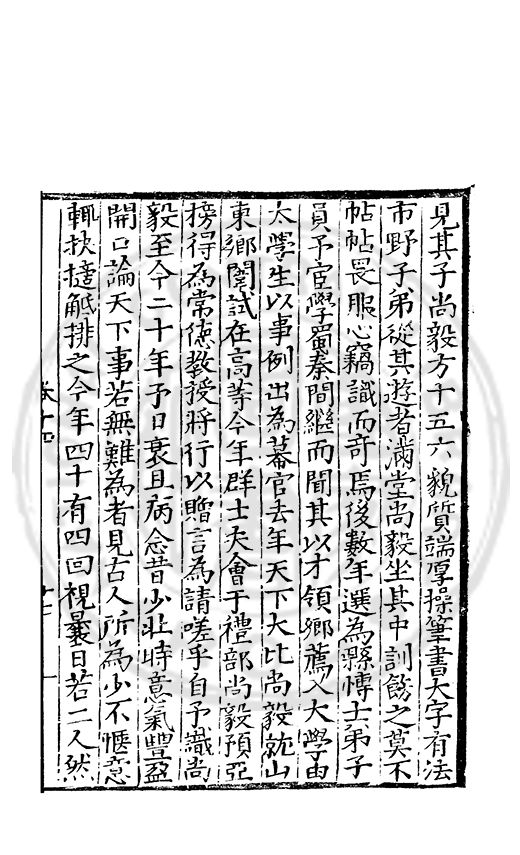 見其子尚毅方十五六貌質端厚操筆書大字有法
市野子弟從其游者滿堂尚毅坐其中訓飭之莫不
帖帖畏服心竊識而奇焉後數年選為縣博士弟子
員予宦學蜀秦間繼而聞其以才領鄉薦入大學由
太學生以事例出為幕官去年天下大比尚毅就山
東鄉闈試在高等今年群士大會于禮部尚毅預亞
榜得為常德教授將行以贈言為請嗟乎自予識尚
毅至今二十年予日衰且病念昔少壯時意氣豐盈
開口論天下事若無難為者見古人所為少不愜意
輒抉擿觝排之今年四十有四回視曩日若二人然
卷十四